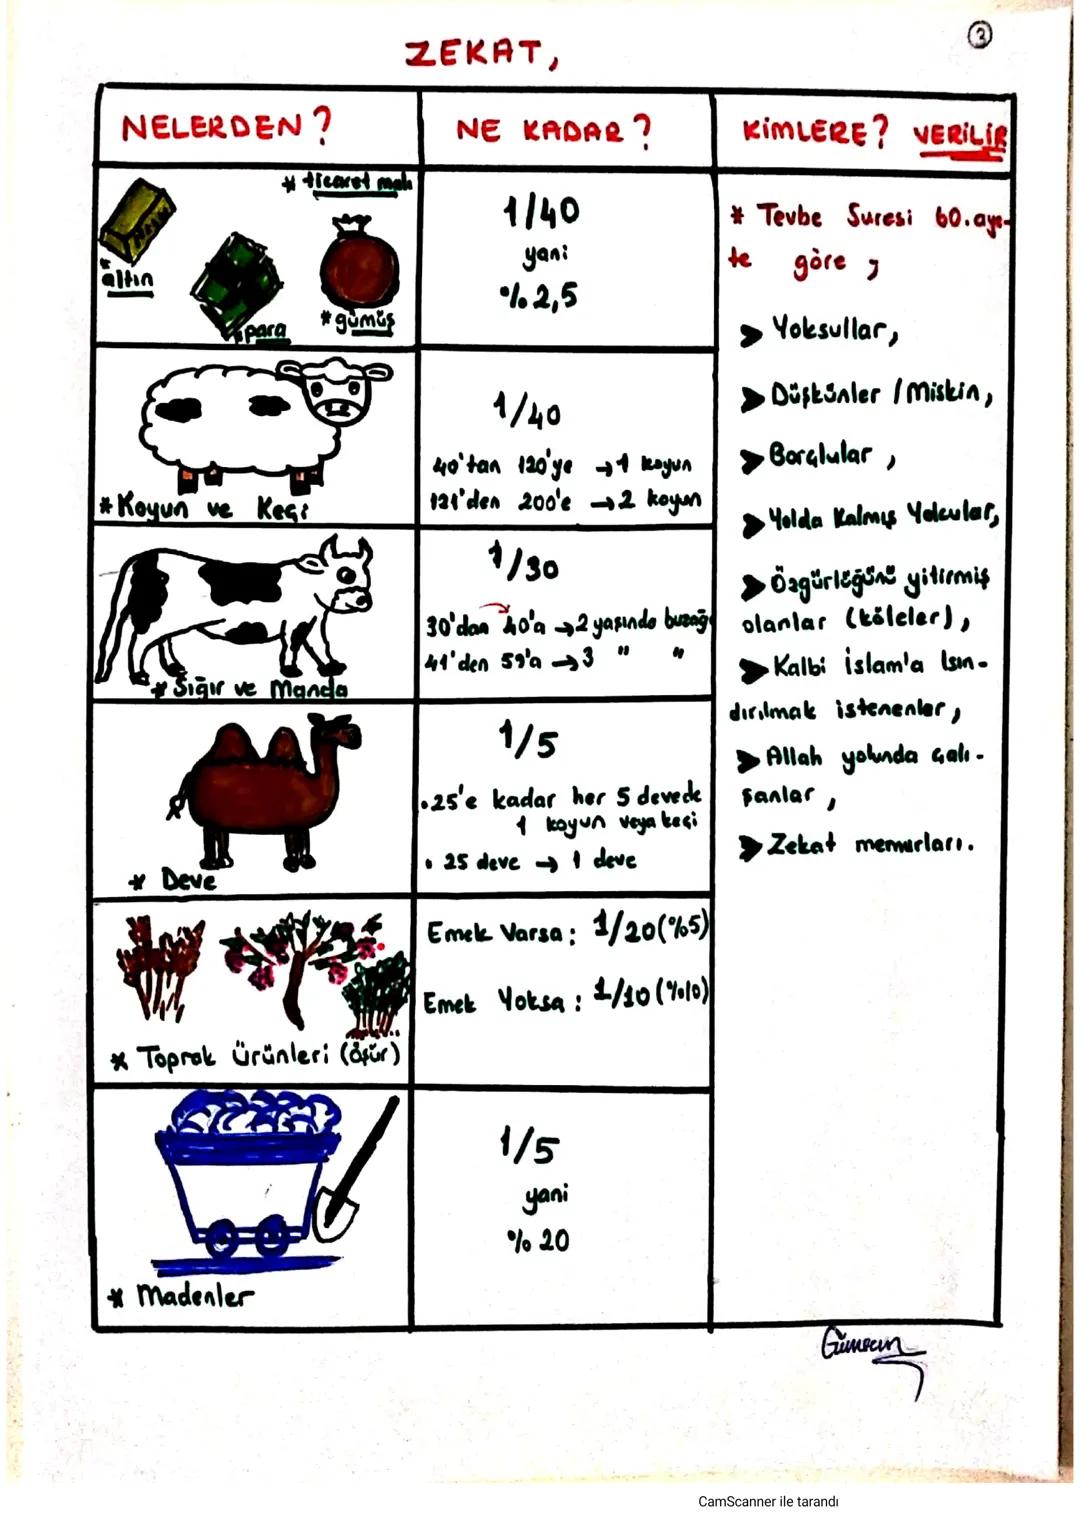 3
ZEKAT,
NELERDEN?
NE KADAR?
KİMLERE? VERİLİR
* ticaret malı
* altın
* para
* gümüş
1/40
yani
% 2,5
* Koyun ve Keçi
1/40
40'tan 120'ye → 1 koyun
121'den 200'e → 2 koyun
* Sığır ve Manda
1/30
30'dan 40'a → 2 yaşında buzağı
41'den 59'a → 3 " "
* Deve
1/5
• 25'e kadar her 5 devede
1 koyun veya keçi
• 25 deve → 1 deve
* Toprak Ürünleri (öşür)
Emek Varsa: 1/20 (%5)
Emek Yoksa: 1/10 (%10)
* Madenler
1/5
yani
% 20
* Tevbe Suresi 60. aye-
te göre ;
➤ Yoksullar,
➤ Düşkünler / Miskin,
➤ Borçlular,
➤ Yolda Kalmış Yolcular,
➤ Özgürlüğünü yitirmiş
olanlar (köleler),
➤ Kalbi İslam'a Isın-
dırılmak istenenler,
➤ Allah yolunda çalı-
şanlar,
➤ Zekat memurları.
CamScanner ile tarandı